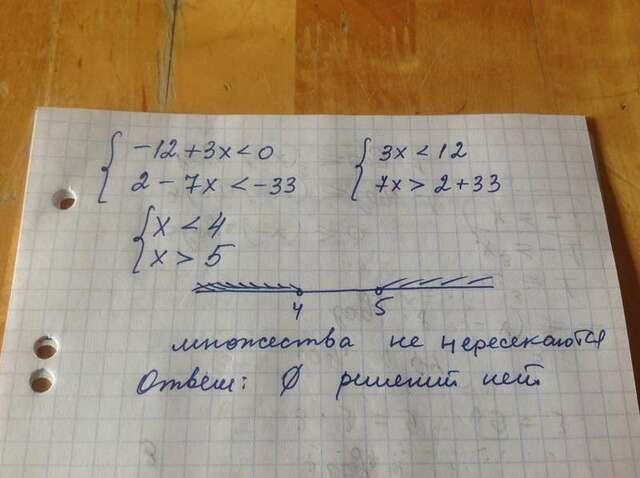 -12+3x<0 3x<12
2-7x<-33 7x>2+33
x<4
x>5
4 5
множества не пересекаются
Ответ: ∅ решений нет